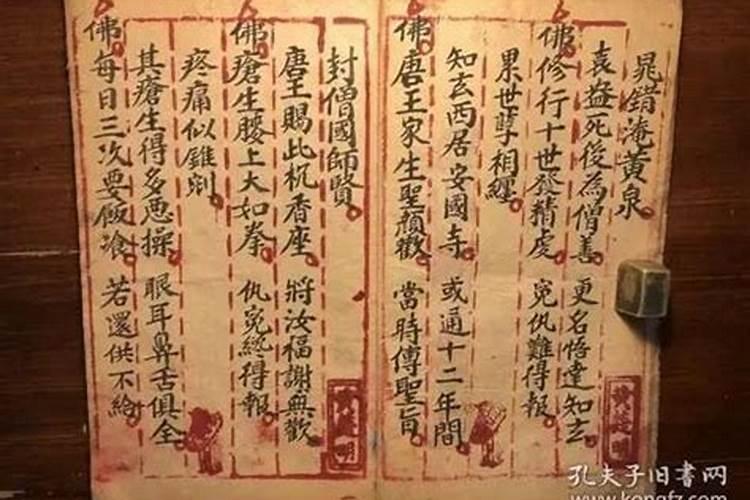 晁錯淹黄泉
袁盎死後為僧善 更名悟達知玄
佛修行十世發精虔 冤仇難得報
累世孽相纏
知玄西居安國寺 或通十二年間
佛唐王家生聖顏歡 當時傳聖旨
封僧國師賢
唐王賜此杌香座 將汝福謝無歡
佛瘡生腰上大如拳 仇冤終得報
疼痛似錐剜
其瘡生得多惡操 眼耳鼻舌俱全
佛每日三次要飯飡 若還供不給
孔夫子旧书网